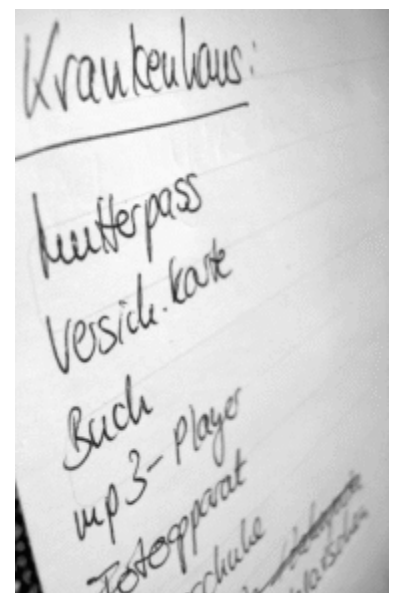 Krankenhaus:
Mutterpass
Versich.karte
Buch
mp3-Player
Fotoapparat